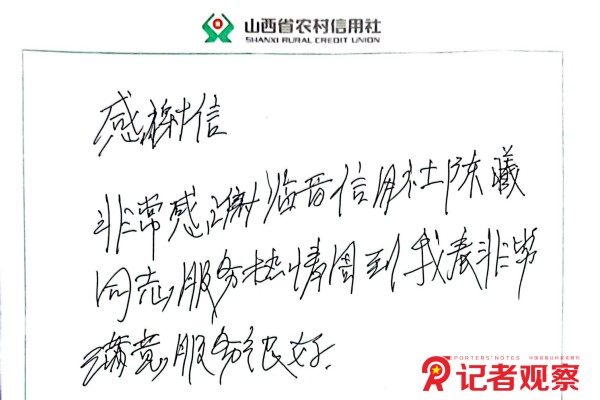 山西省农村信用社
SHANXI RURAL CREDIT UNION
感谢信
非常感谢临晋信用社陈曦
同志服务热情周到我表非常
满意服务很好.
REPORTERS' NOTES
记者观察